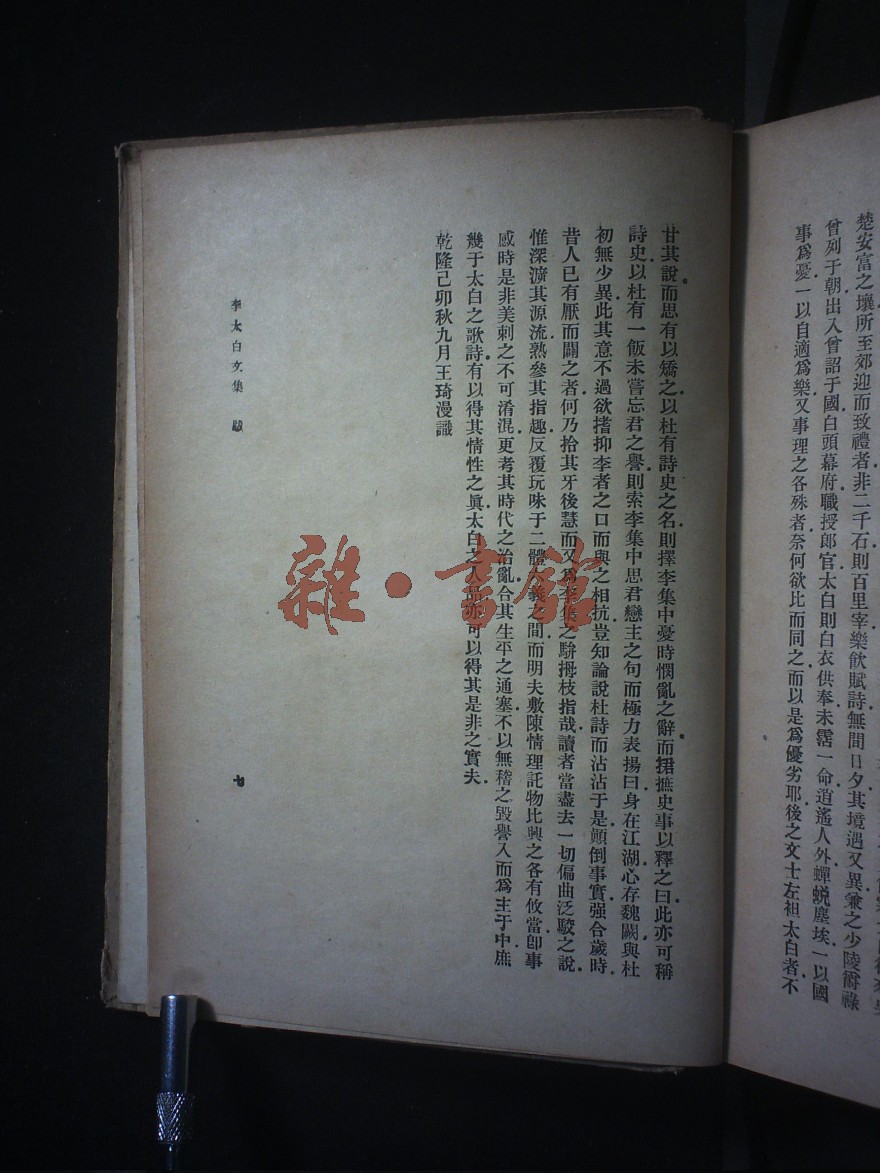 楚安富之壤所至郊迎而致禮者非二千石則百里宰樂飮賦詩無間日夕其境遇又異兼之少陵爵祿
曾列于朝出入曾詔于國白頭幕府職授郎官太白則白衣供奉未霑一命逍遙人外蟬蛻塵埃一以國
事爲憂一以自適爲樂又事理之各殊者奈何欲比而同之而以是爲優劣耶後之文士左袒太白者不
甘其說而思有以矯之以杜有詩史之名則擇李集中憂時憫亂之辭而捃摭史事以釋之曰此亦可稱
詩史以杜有一飯未嘗忘君之譽則索李集中思君戀主之句而極力表揚曰身在江湖心存魏闕與杜
初無少異此其意不過欲揞抑李者之口而與之相抗豈知論說杜詩而沾沾于是顚倒事實强合歲時
昔人已有厭而闢之者何乃拾其牙後慧而又爲李集之騈拇枝指哉讀者當盡去一切偏曲泛駮之說
惟深㵎其源流熟參其指趣反覆玩味于二體六義之間而明夫敷陳情理託物比興之各有攸當卽事
感時是非美刺之不可淆混更考其時代之治亂合其生平之通塞不以無稽之毀譽入而爲主于中庶
幾于太白之歌詩有以得其情性之眞太白之人品亦可以得其是非之實夫
乾隆己卯秋九月王琦漫識
李太白文集 跋
七
雜·書館